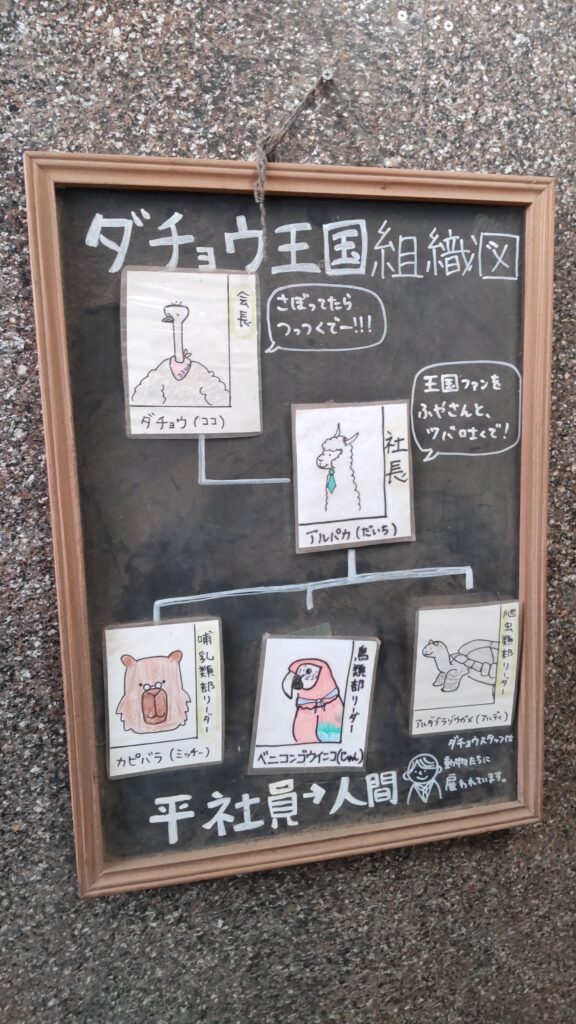 ダチョウ王国組織図
会長
さぼってたら
つっつくでー!!!
ダチョウ(ココ)
王国ファンを
ふやさんと、
ツバ吐くで!
社長
アルパカ(だいち)
哺乳類部リーダー
カピバラ(ミッチー)
鳥類部リーダー
ベニコンゴウインコ(じゃん)
爬虫類部リーダー
アルダブラゾウガメ(アルディ)
ダチョウスタッフは
動物たちに
雇われています。
平社員→人間